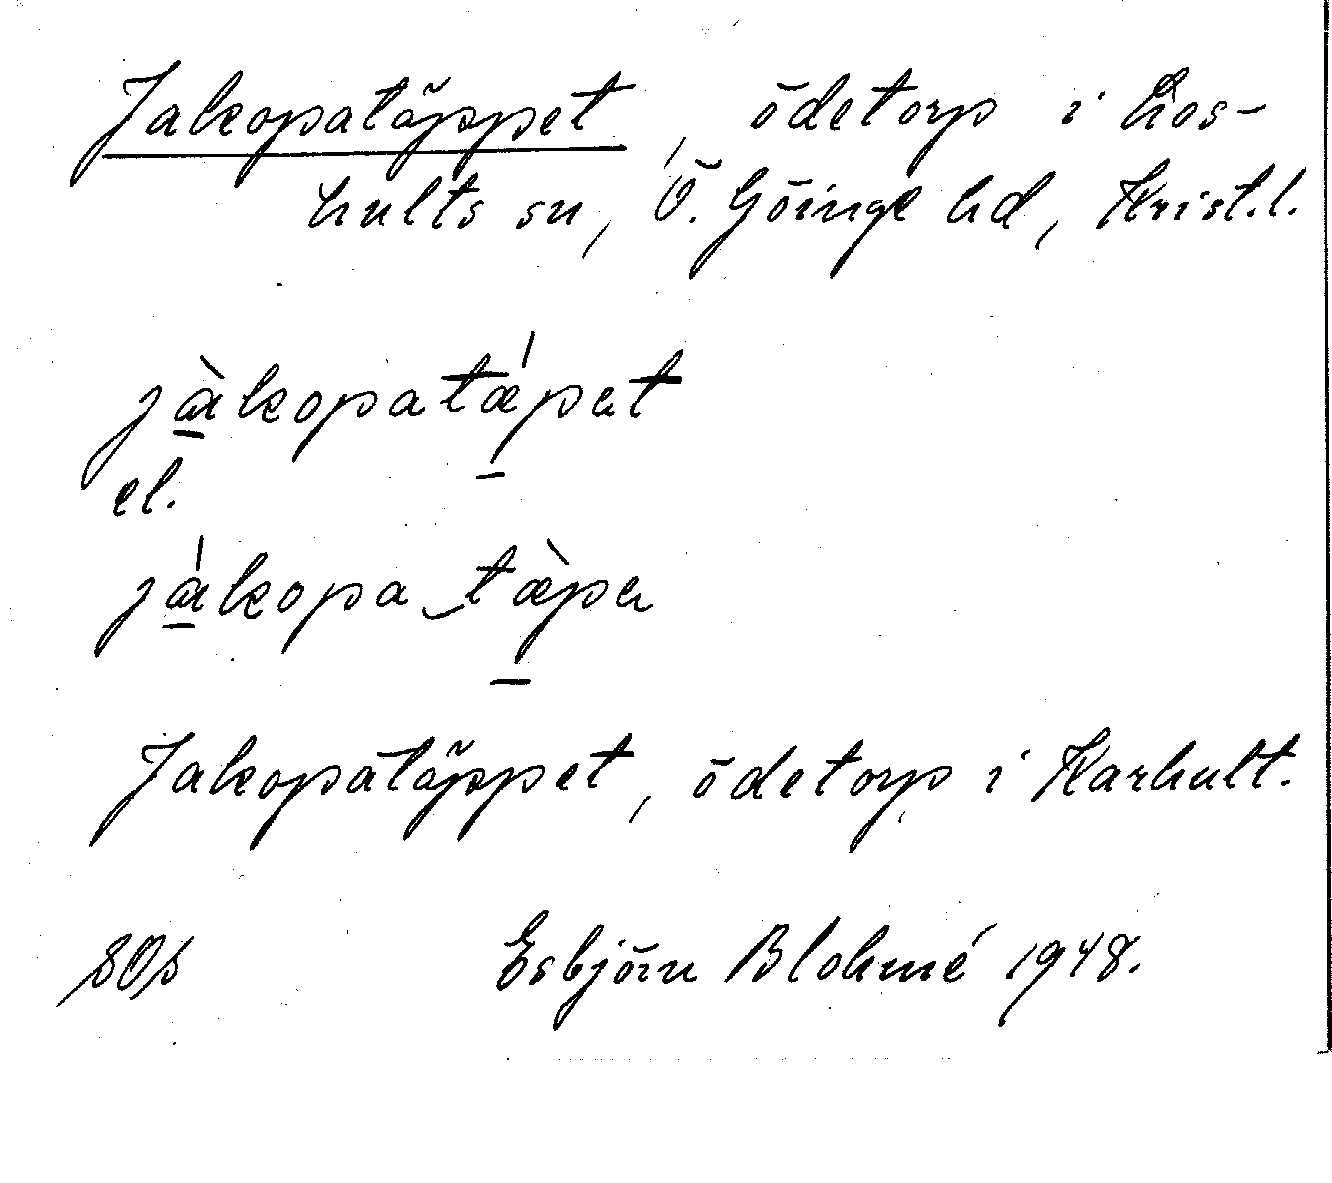 Jakopatäppet, ödetorp i Los-
hults sn, Ö. Göinge hd, Krist.l.
jàkopatǽpet
el.
jákopa‿tæ̀pe
Jakopatäppet, ödetorp i Karhult.
Esbjörn Blohmé 1948.